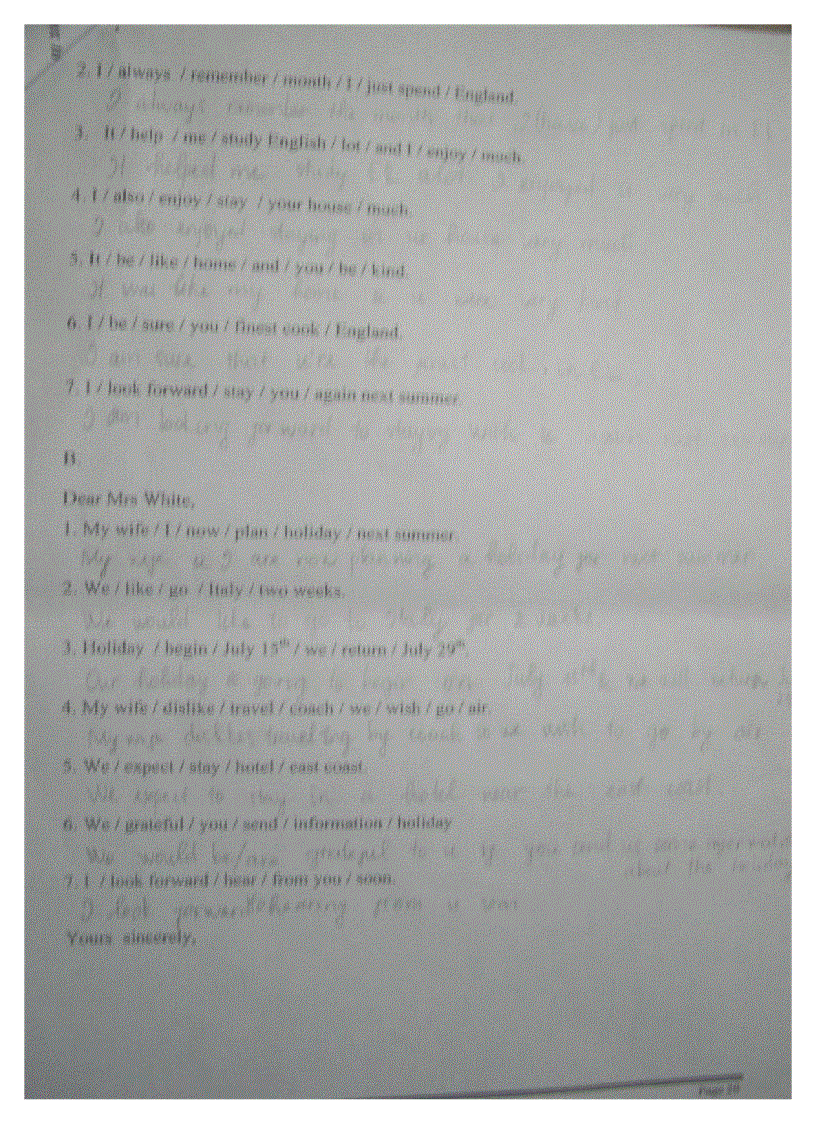 2. I / always / remember / month / I / just spend / England.
I always remember the month that I (have) just spent in
3. It / help / me / study English / lot / and I / enjoy / much.
It helped me study a lot I enjoyed it very much
4. I / also / enjoy / stay / your house / much.
I also enjoyed staying in house very much
5. It / be / like / home / and / you / be / kind.
It was like my home & u were very kind
6. I / be / sure / you / finest cook / England.
I am sure that the finest cook in
7. I / look forward / stay / you / again next summer.
I am looking forward to staying with u again next summer
B.
Dear Mrs White,
1. My wife / I / now / plan / holiday / next summer.
My wife & I are now planning a holiday for next summer
2. We / like / go / Italy / two weeks.
We would like to go to Italy for 2 weeks
3. Holiday / begin / July 15th / we / return / July 29th.
Our holiday is going to begin on July 15th & we will return
4. My wife / dislike / travel / coach / we / wish / go / air.
My wife dislikes travelling by coach & we wish to go by air
5. We / expect / stay / hotel / east coast.
We expect to stay in a hotel near the east coast
6. We / grateful / you / send / information / holiday
We would be/are grateful to u if you send us some information
about the holiday
7. I / look forward / hear / from you / soon.
I look forward to hearing from u soon
Yours sincerely,
Page 20